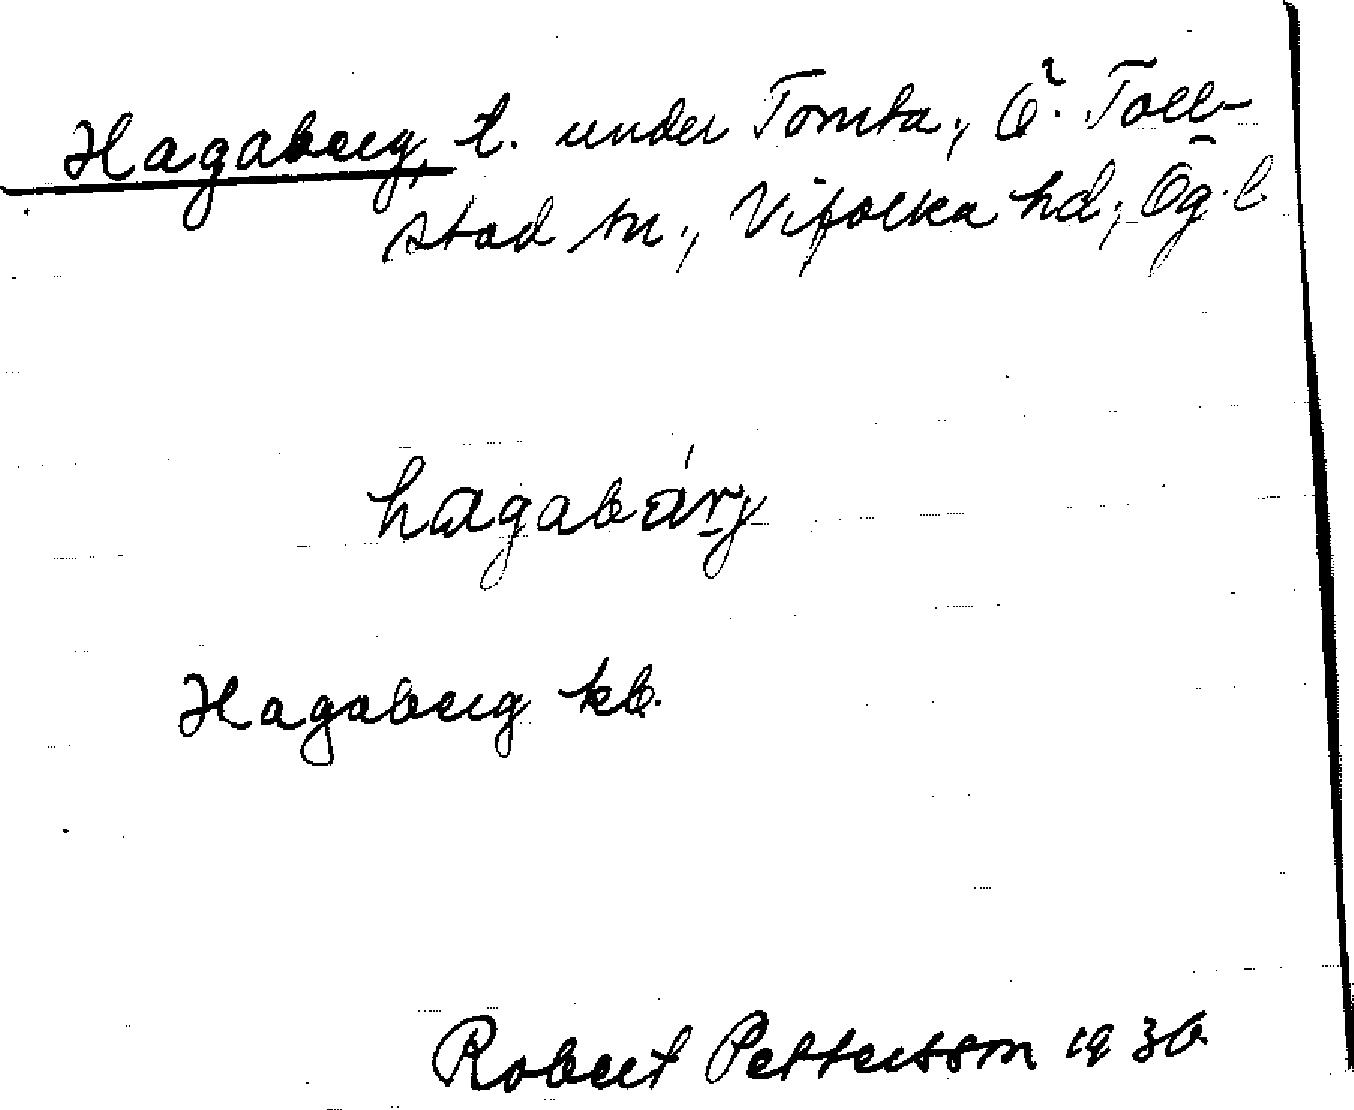 Hagaberg, t. under Tomta, Ö. Toll-
stad sn., Vifolka hd, Ög. l
hagabárj
Hagaberg kb.
Robert Pettersson 1936